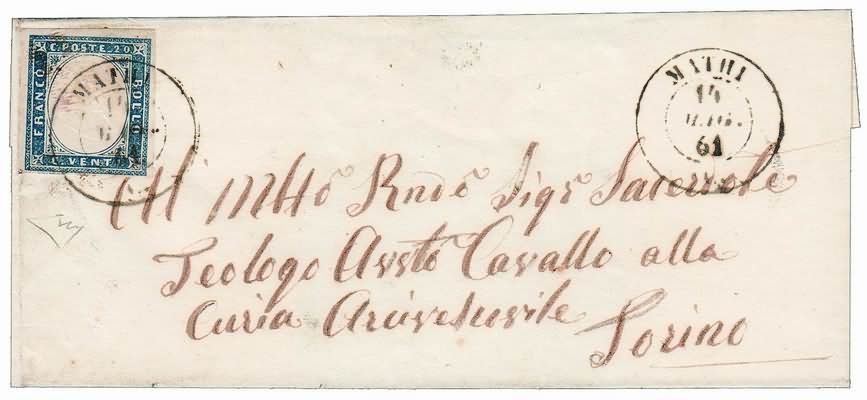 C. POSTE. 20
FRANCO
BOLLO
C. VENTI
MATHI
14
61
MATHI
14
MAG.
61
All Mtto Rndo Sigr Sacerdote
Teologo Avvto Cavallo alla
Curia Arcivescovile
Torino